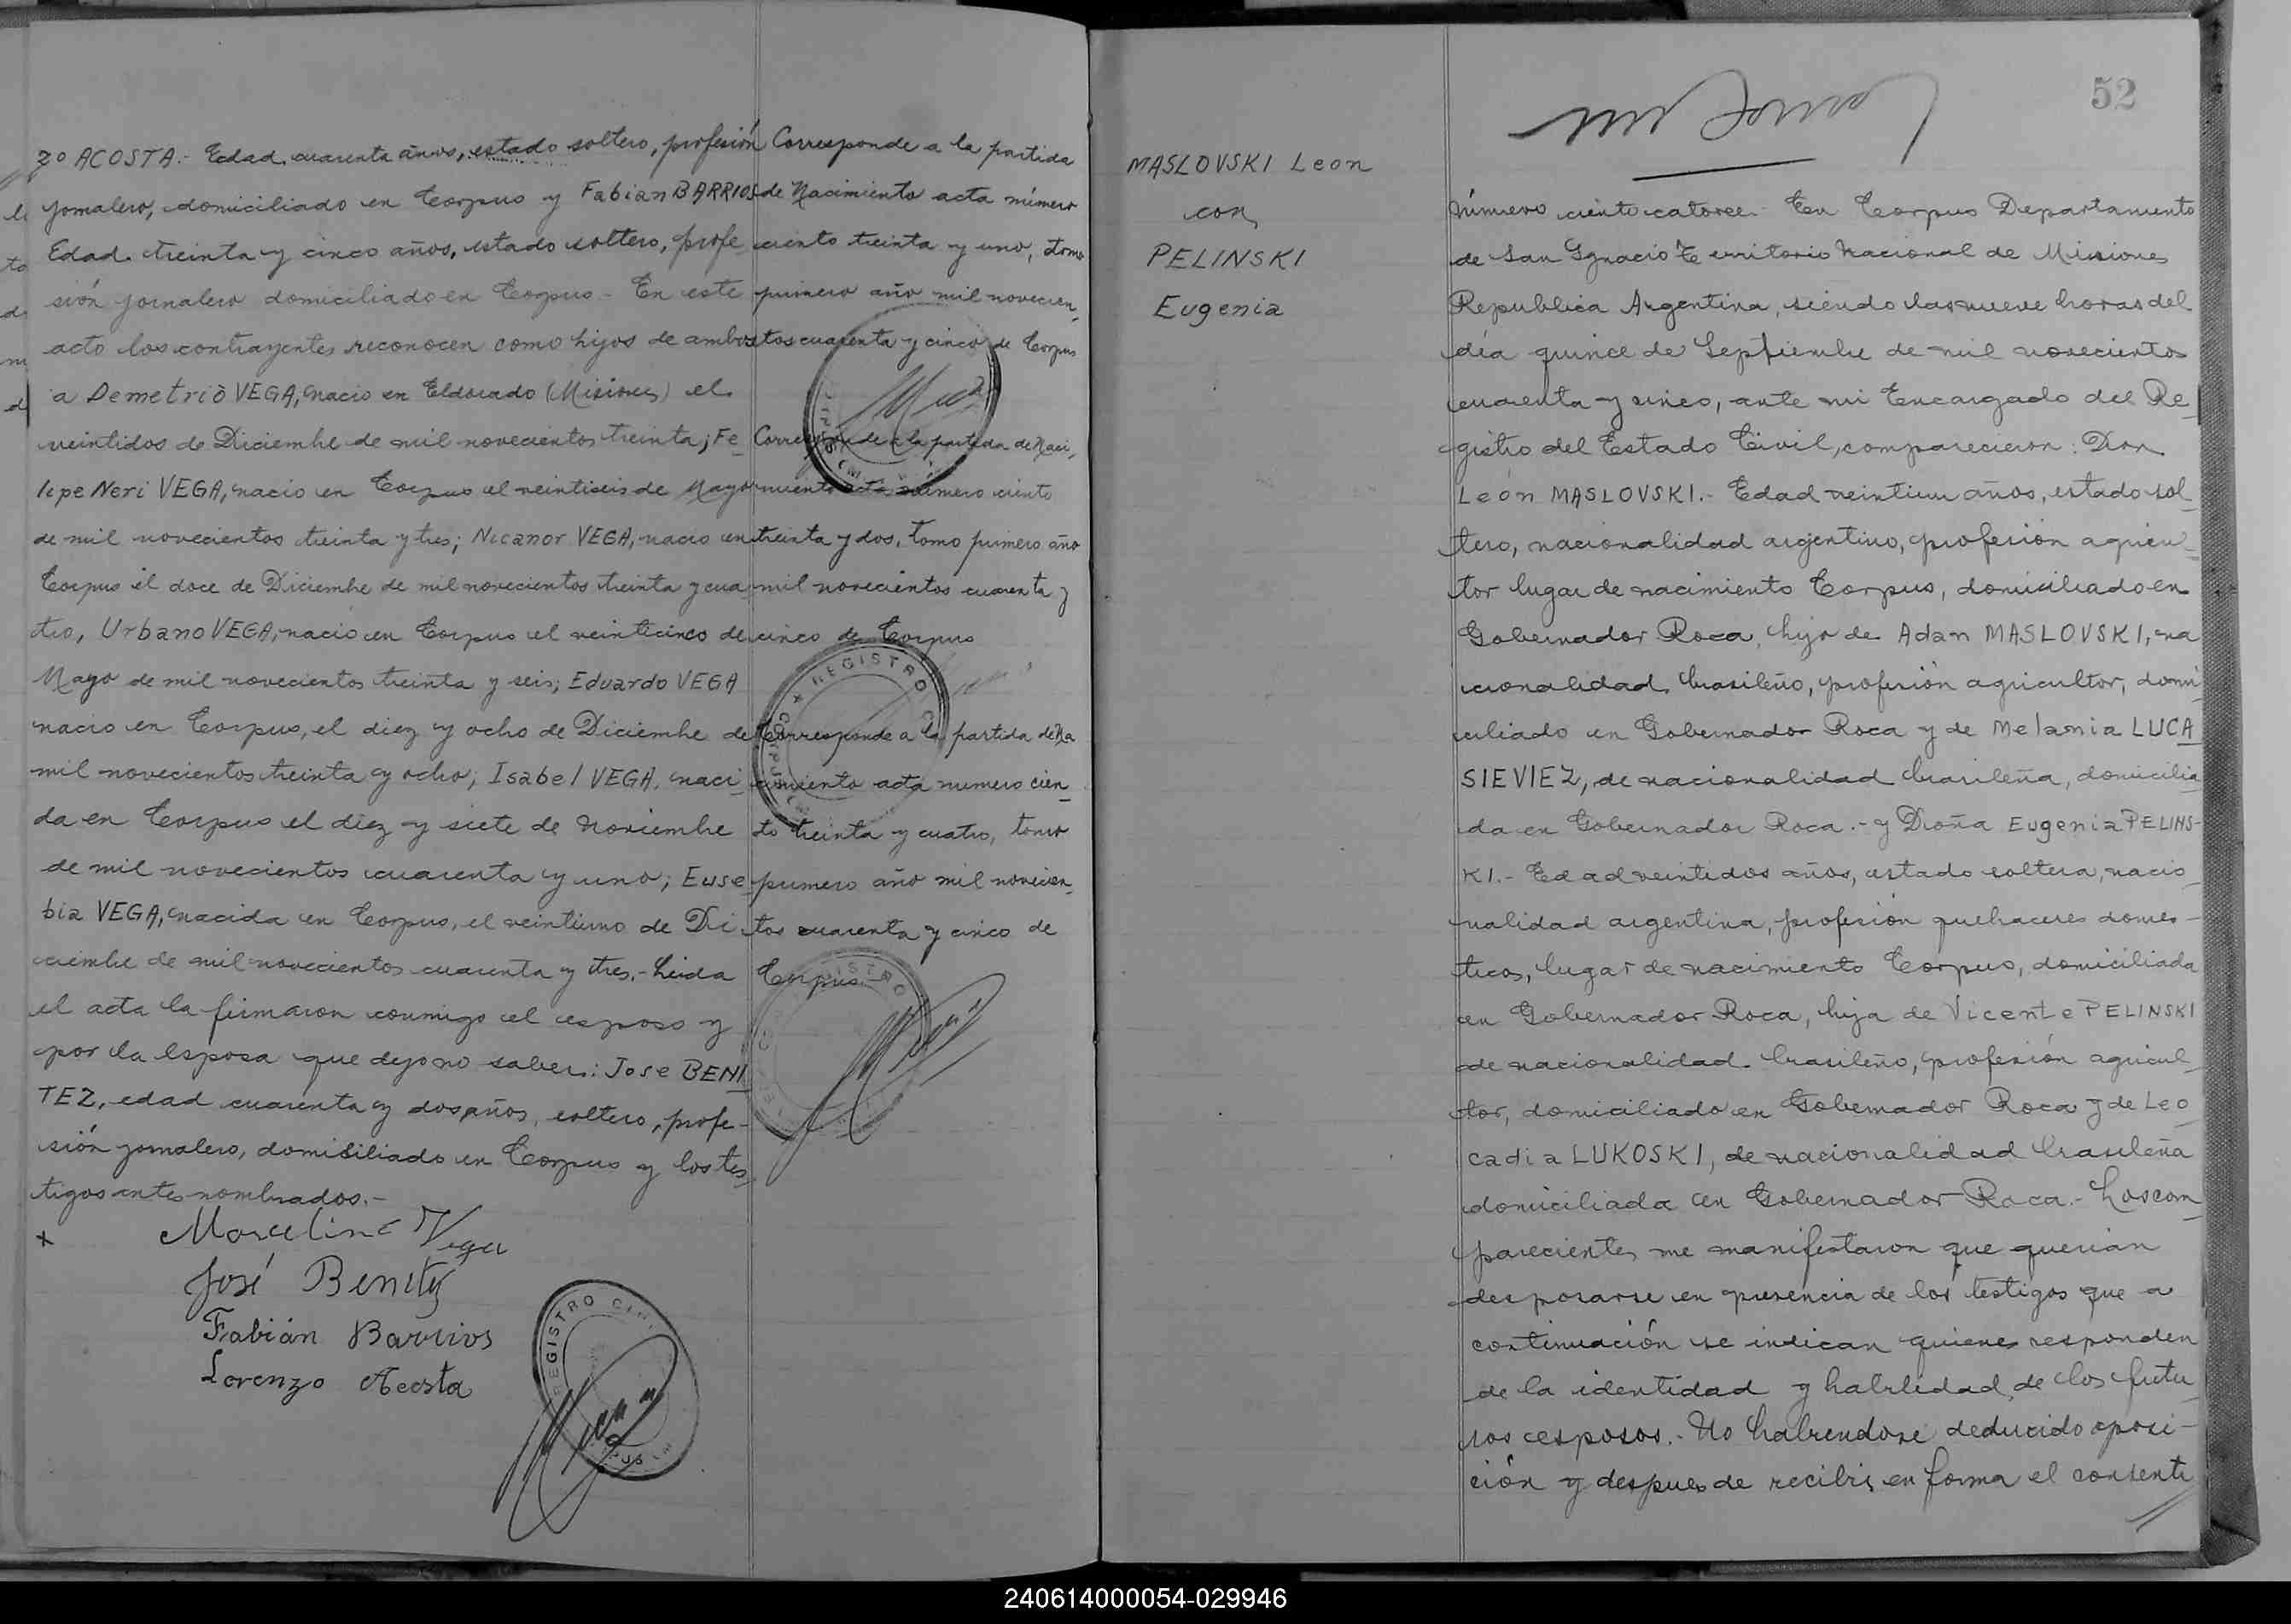 zo ACOSTA.- Edad cuarenta años, estado soltero, profesión
jornalero, domiciliado en Corpus y Fabian BARRIOS
Edad treinta y cinco años, estado soltero, profe
sión jornalero domiciliado en Corpus - En este
acto los contrayentes reconocen como hijos de ambos
a Demetrio VEGA, nacio en Eldorado (Misiones) el
veintidos de Diciembre de mil novecientos treinta; Fe
lipe Neri VEGA, nacio en Corpus el veintiseis de Mayo
de mil novecientos treinta y tres; Nicanor VEGA, nacio en
Corpus el doce de Diciembre de mil novecientos treinta y cua
tro, Urbano VEGA, nacio en Corpus el veinticinco de
Mayo de mil novecientos treinta y seis; Eduardo VEGA
nacio en Corpus, el diez y ocho de Diciembre de
mil novecientos treinta y ocho; Isabel VEGA, naci
da en Corpus el diez y siete de Noviembre
de mil novecientos cuarenta y uno; Euse
bia VEGA, nacida en Corpus, el veintiuno de Di
ciembre de mil novecientos cuarenta y tres.- Leida
el acta la firmaron conmigo el esposo y
por la esposa que dejo no saber: Jose BENI
TEZ, edad cuarenta y dos años, soltero, profe-
sión jornalero, domisiliado en Corpus y los tes
tigos antes nombrados.-
Marcelino Vega
José Benitez
Fabián Barrios
Lorenzo Acosta
REGISTRO CIVIL
Corresponde a la partida
de Nacimiento acta número
ciento treinta y uno, tomo
primero año mil novecien
tos cuarenta y cinco de Corpus
Corresponde a la partida de Naci,
miento acta número ciento
treinta y dos, tomo primero año
mil novecientos cuarenta y
cinco de Corpus
REGISTRO
Corresponde a la partida de Na
cimiento acta numero cien
to treinta y cuatro, tomo
primero año mil novecien
tos cuarenta y cinco de
Corpus
52
MASLOVSKI Leon
con
PELINSKI
Eugenia
Número ciento catorce.- En Corpus Departamento
de San Ignacio Territorio Nacional de Misiones
Republica Argentina, siendo las nueve horas del
día quince de Septiembre de mil novecientos
cuarenta y cinco, ante mi Encargado del Re
gistro del Estado Civil, comparecieron: Don
León MASLOVSKI.- Edad veintiun años, estado sol
tero, nacionalidad argentino, profesión agricul
tor lugar de nacimiento Corpus, domiciliado en
Gobernador Roca, hijo de Adan MASLOVSKI, na
cionalidad brasileño, profesión agricultor, domi
ciliado en Gobernador Roca y de Melania LUCA
SIEVIEZ, de nacionalidad brasileña, domicilia
da en Gobernador Roca.- y Doña Eugenia PELINS-
KI.- Edad veintidos años, estado soltera, nacio
nalidad argentina, profesión quehaceres domes-
ticos, lugar de nacimiento Corpus, domiciliada
en Gobernador Roca, hija de Vicente PELINSKI
de nacionalidad brasileño, profesión agricul
tor, domiciliado en Gobernador Roca y de Leo
cadia LUKOSKI, de nacionalidad brasileña
domiciliada en Gobernador Roca.- Los com
parecientes me manifestaron que querian
desposarse en presencia de los testigos que a
continuación se indican quienes responden
de la identidad y habilidad de los futu
ros esposos.- No habiendose deducido oposi-
ción y despues de recibir en forma el consenti
240614000054-029946